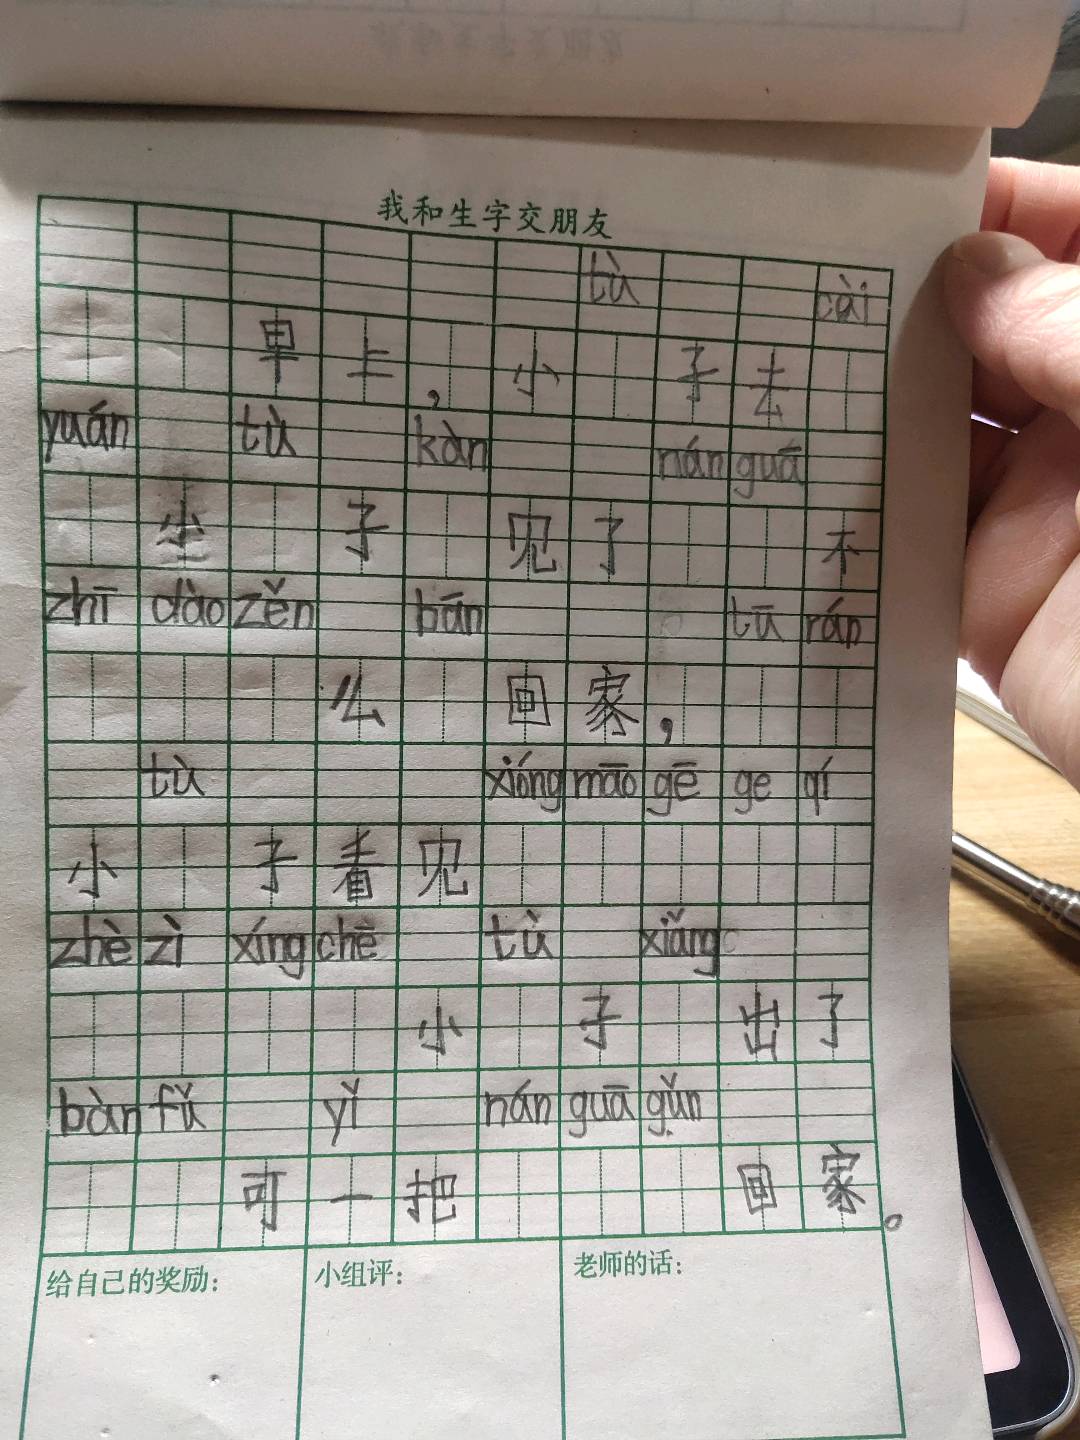 我和生字交朋友
tù cài
早上，小子去
yuán tù kàn nán guā
小子见了不
zhī dào zěn bān tū rán
么回家，
tù xióng māo gē ge qí
小子看见
zhè zì xíng chē tù xiǎng
小子出了
bàn fǔ yǐ nán guā gǔn
可一把回家。
给自己的奖励：
小组评：
老师的话：